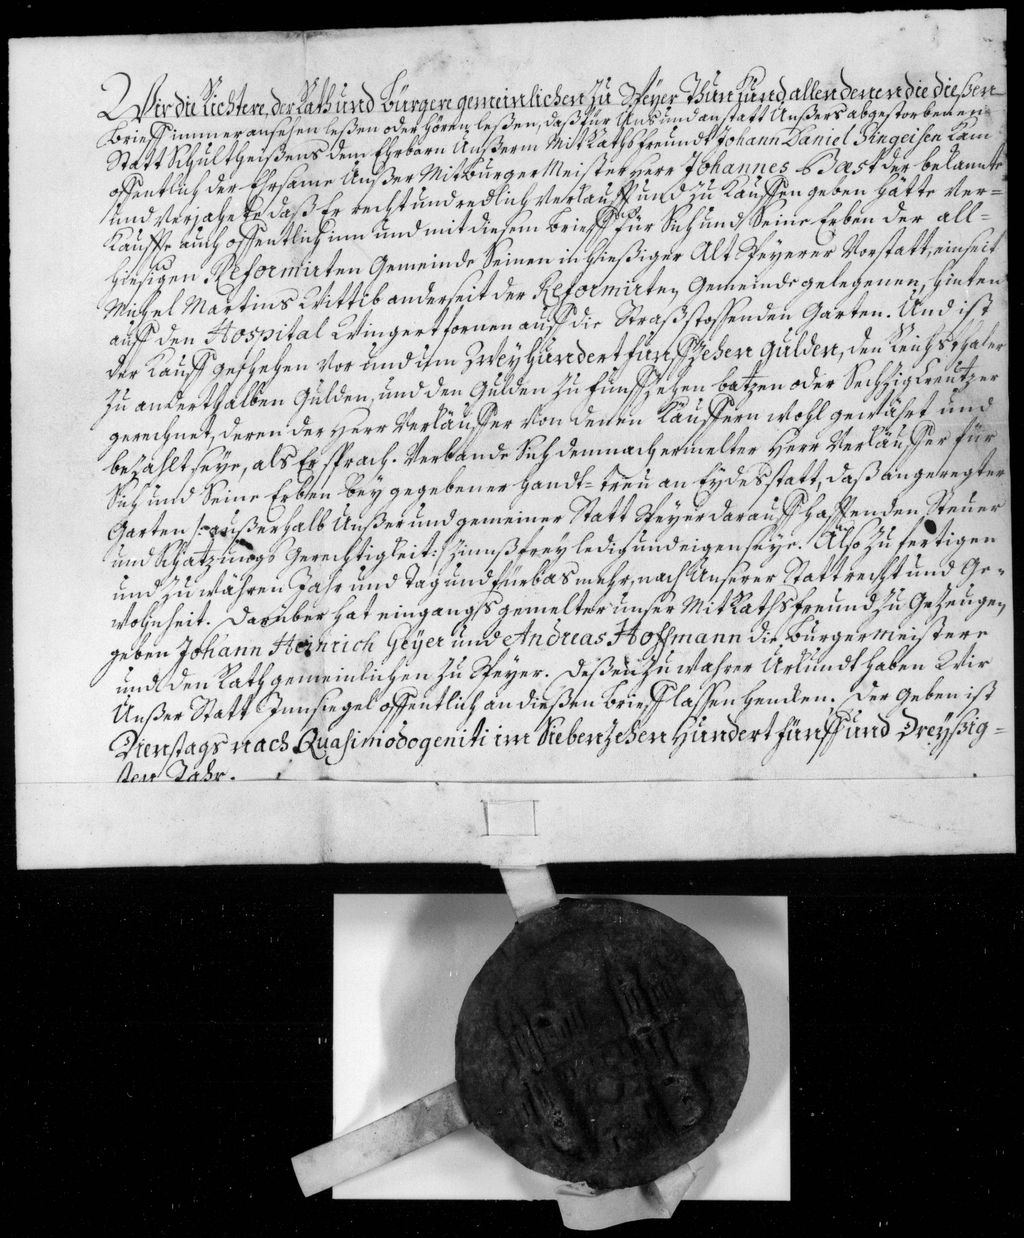 Wir die Richtere, der Rath und Bürgere gemeinlichen zu Speyer Thun Kund allen denen die dießen
Brieff immer ansehen leßen oder hören leßen, daß für Uns und anstatt Unßers abgestorbenen
Statt Schultheißens dem Ehrbarn Unßerm MitRathsfreundt Johann Daniel Zingeisen Kam
offentlich der Ehrsame Unßer MitBurgerMeister Herr Johannes Bask der bekannte
und verjahete daß Er recht und redlich verkaufft und zu Kauffen geben hätte ver-
kauffte auch offentlich inn und mit diesem Brieff für Sich und Seine Erben der all-
hießigen Reformirten Gemeinde Seinen in hießiger Alt Speyerer Vorstatt, einseit
Michel Martins Wittib anderseit der Reformirten Gemeinde gelegenen, hinten
auff den Hospital Wingert fornen auff die Straß stoßenden Garten. Und ist
der Kauff geschehen vor und um Zweyhundert funffzehen Gulden, den Reichsthaler
zu anderthalben Gulden, und den Gulden zu funffzehen batzen oder Sechzig Creutzer
gerechnet, deren der Herr Verkäuffer von denen Käuffern wohl gewährt und
bezahlt seye, als Er sprach. Verbande Sich demnach ermelter Herr Verkäuffer für
Sich und Seine Erben bey gegebener Handt-treu an Eydes statt, daß angeregter
Garten /: außerhalb Unßer und gemeiner Statt Speyer darauff hafftenden Steuer
und Schatzungs Gerechtigkeit :/ Zinnßfrey ledig und eigen seye. Also zu fertigen
und zu währen Jahr und Tag und fürbas mehr, nach Unserer Statt recht und Ge-
wohnheit. Darüber hat eingangs gemelter unser MitRathsfreund zu Gezeugen
geben Johann Heinrich Geyer und Andreas Hoffmann die Burgermeistere
und den Rath gemeinlichen zu Speyer. Deßen zu wahrer Urkundt haben Wir
Unßer Statt Innsiegel offentlich an dießen Brieff lassen hencken. Der Geben ist
Dienstags nach Quasimodogeniti im Siebenzehen Hundert fünff und Dreyßig-
sten Jahr.